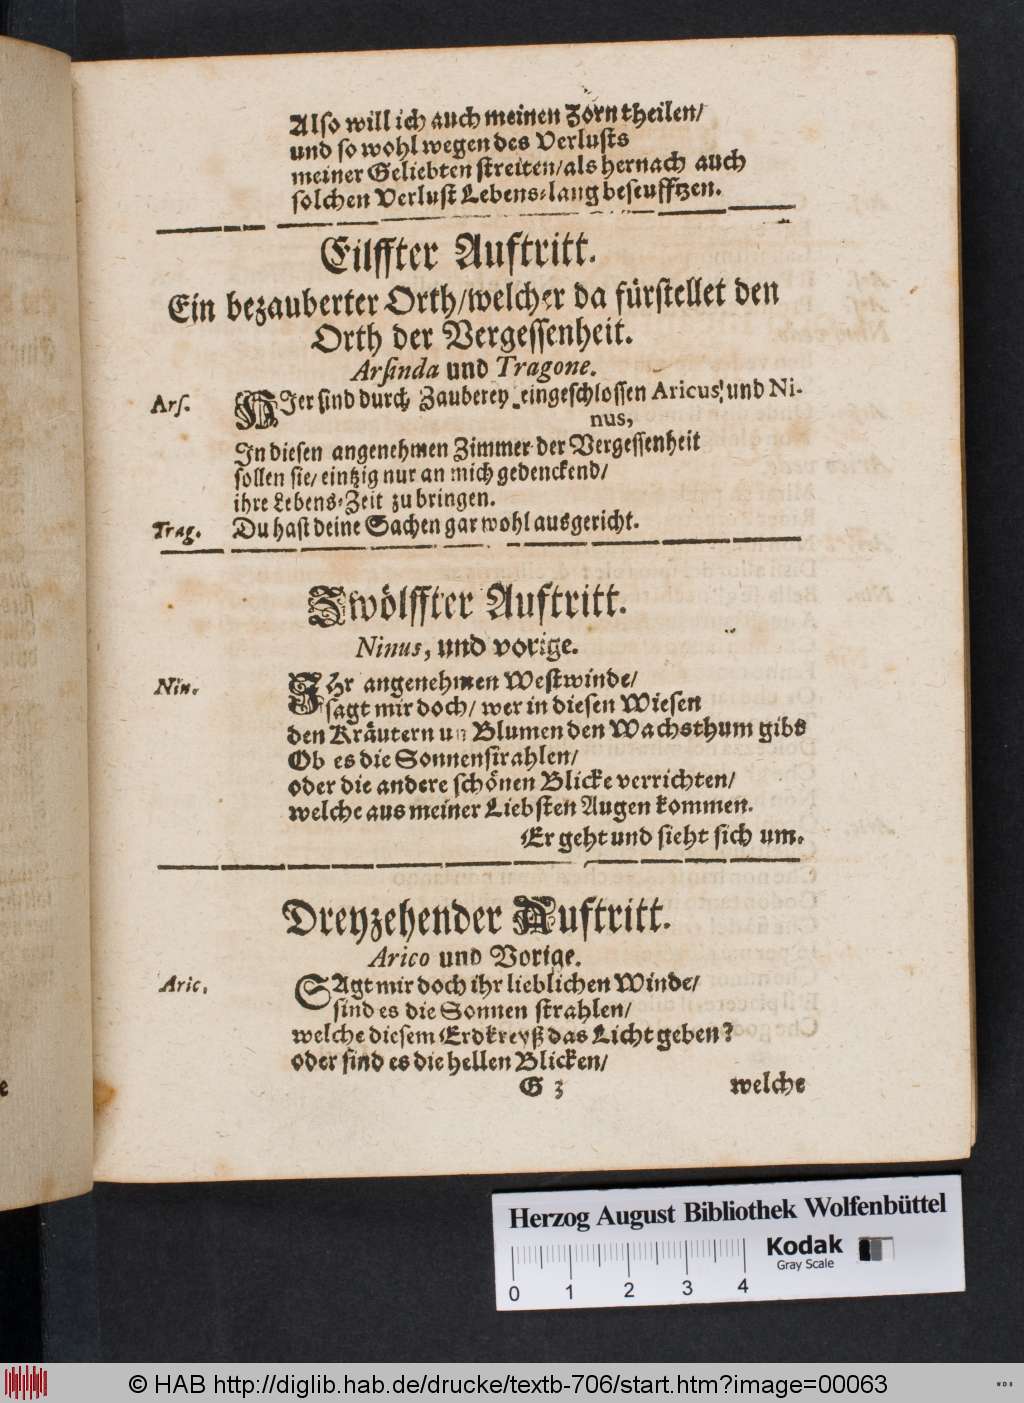 Also will ich auch meinen Zorn theilen/
und so wohl wegen des Verlusts
meiner Geliebten streiten/als hernach auch
solchen Verlust Lebens-lang beseufftzen.
Eilffter Auftritt.
Ein bezauberter Orth/welcher da fürstellet den
Orth der Vergessenheit.
Arsinda und Tragone.
Ars. HJer sind durch Zauberey eingeschlossen Aricus, und Ni-
nus,
In diesen angenehmen Zimmer der Vergessenheit
sollen sie/ eintzig nur an mich gedenckend/
ihre Lebens-Zeit zu bringen.
Trag. Du hast deine Sachen gar wohl ausgericht.
Zwölffter Auftritt.
Ninus, und vorige.
Nin. JHr angenehmen Westwinde/
sagt mir doch/ wer in diesen Wiesen
den Kräutern un Blumen den Wachsthum gibs
Ob es die Sonnenstrahlen/
oder die andere schönen Blicke verrichten/
welche aus meiner Liebsten Augen kommen.
Er geht und sieht sich um.
Dreyzehender Auftritt.
Arico und Vorige.
Aric. SAgt mir doch ihr lieblichen Winde/
sind es die Sonnen strahlen/
welche diesem Erdkreyß das Licht geben?
oder sind es die hellen Blicken/
G 3 welche
Herzog August Bibliothek Wolfenbüttel
Kodak
Gray Scale
0 1 2 3 4
© HAB http://diglib.hab.de/drucke/textb-706/start.htm?image=00063